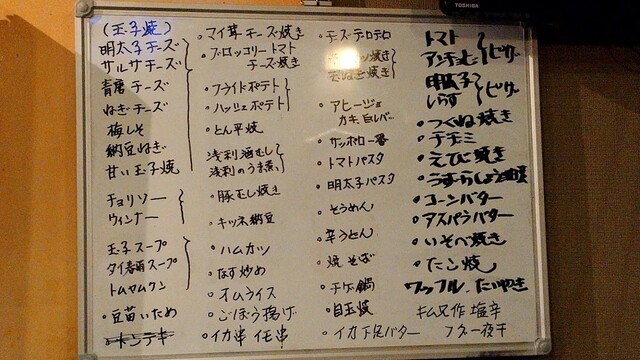 TOSHIBA
(玉子焼)
明太子チーズ
サルサチーズ
青唐チーズ
ねぎチーズ
梅しそ
納豆ねぎ
甘い玉子焼
チョリソー
ウィンナー
玉子スープ
タイ春雨スープ
トムヤムクン
・豆苗いため
・マイ茸チーズ焼き
・ブロッコリートマト
チーズ焼き
・フライドポテト
・ハッシュポテト
・とん平焼
浅利酒むし
浅利のうま煮
・豚むし焼き
・キツネ納豆
・ハムカツ
・なす炒め
・オムライス
・ごぼう揚げ
・イカ串 イモ串
・チーズテロテロ
焼き
焼き
・アヒージョ
カキ、白レバー
・サッポロ一番
・トマトパスタ
・明太子パスタ
・そうめん
・辛うどん
・焼そば
・チゲ鍋
・目玉焼
・イカ下足バター
トマト
アンチョビ
ピザ
明太子
しらす
ピザ
・つくね焼き
・テモミ
・えびじ焼き
・コーンバター
・アスパラバター
・いそべ焼き
・たこ焼
ワッフル、たいやき
キム兄作塩辛
フグ一夜干